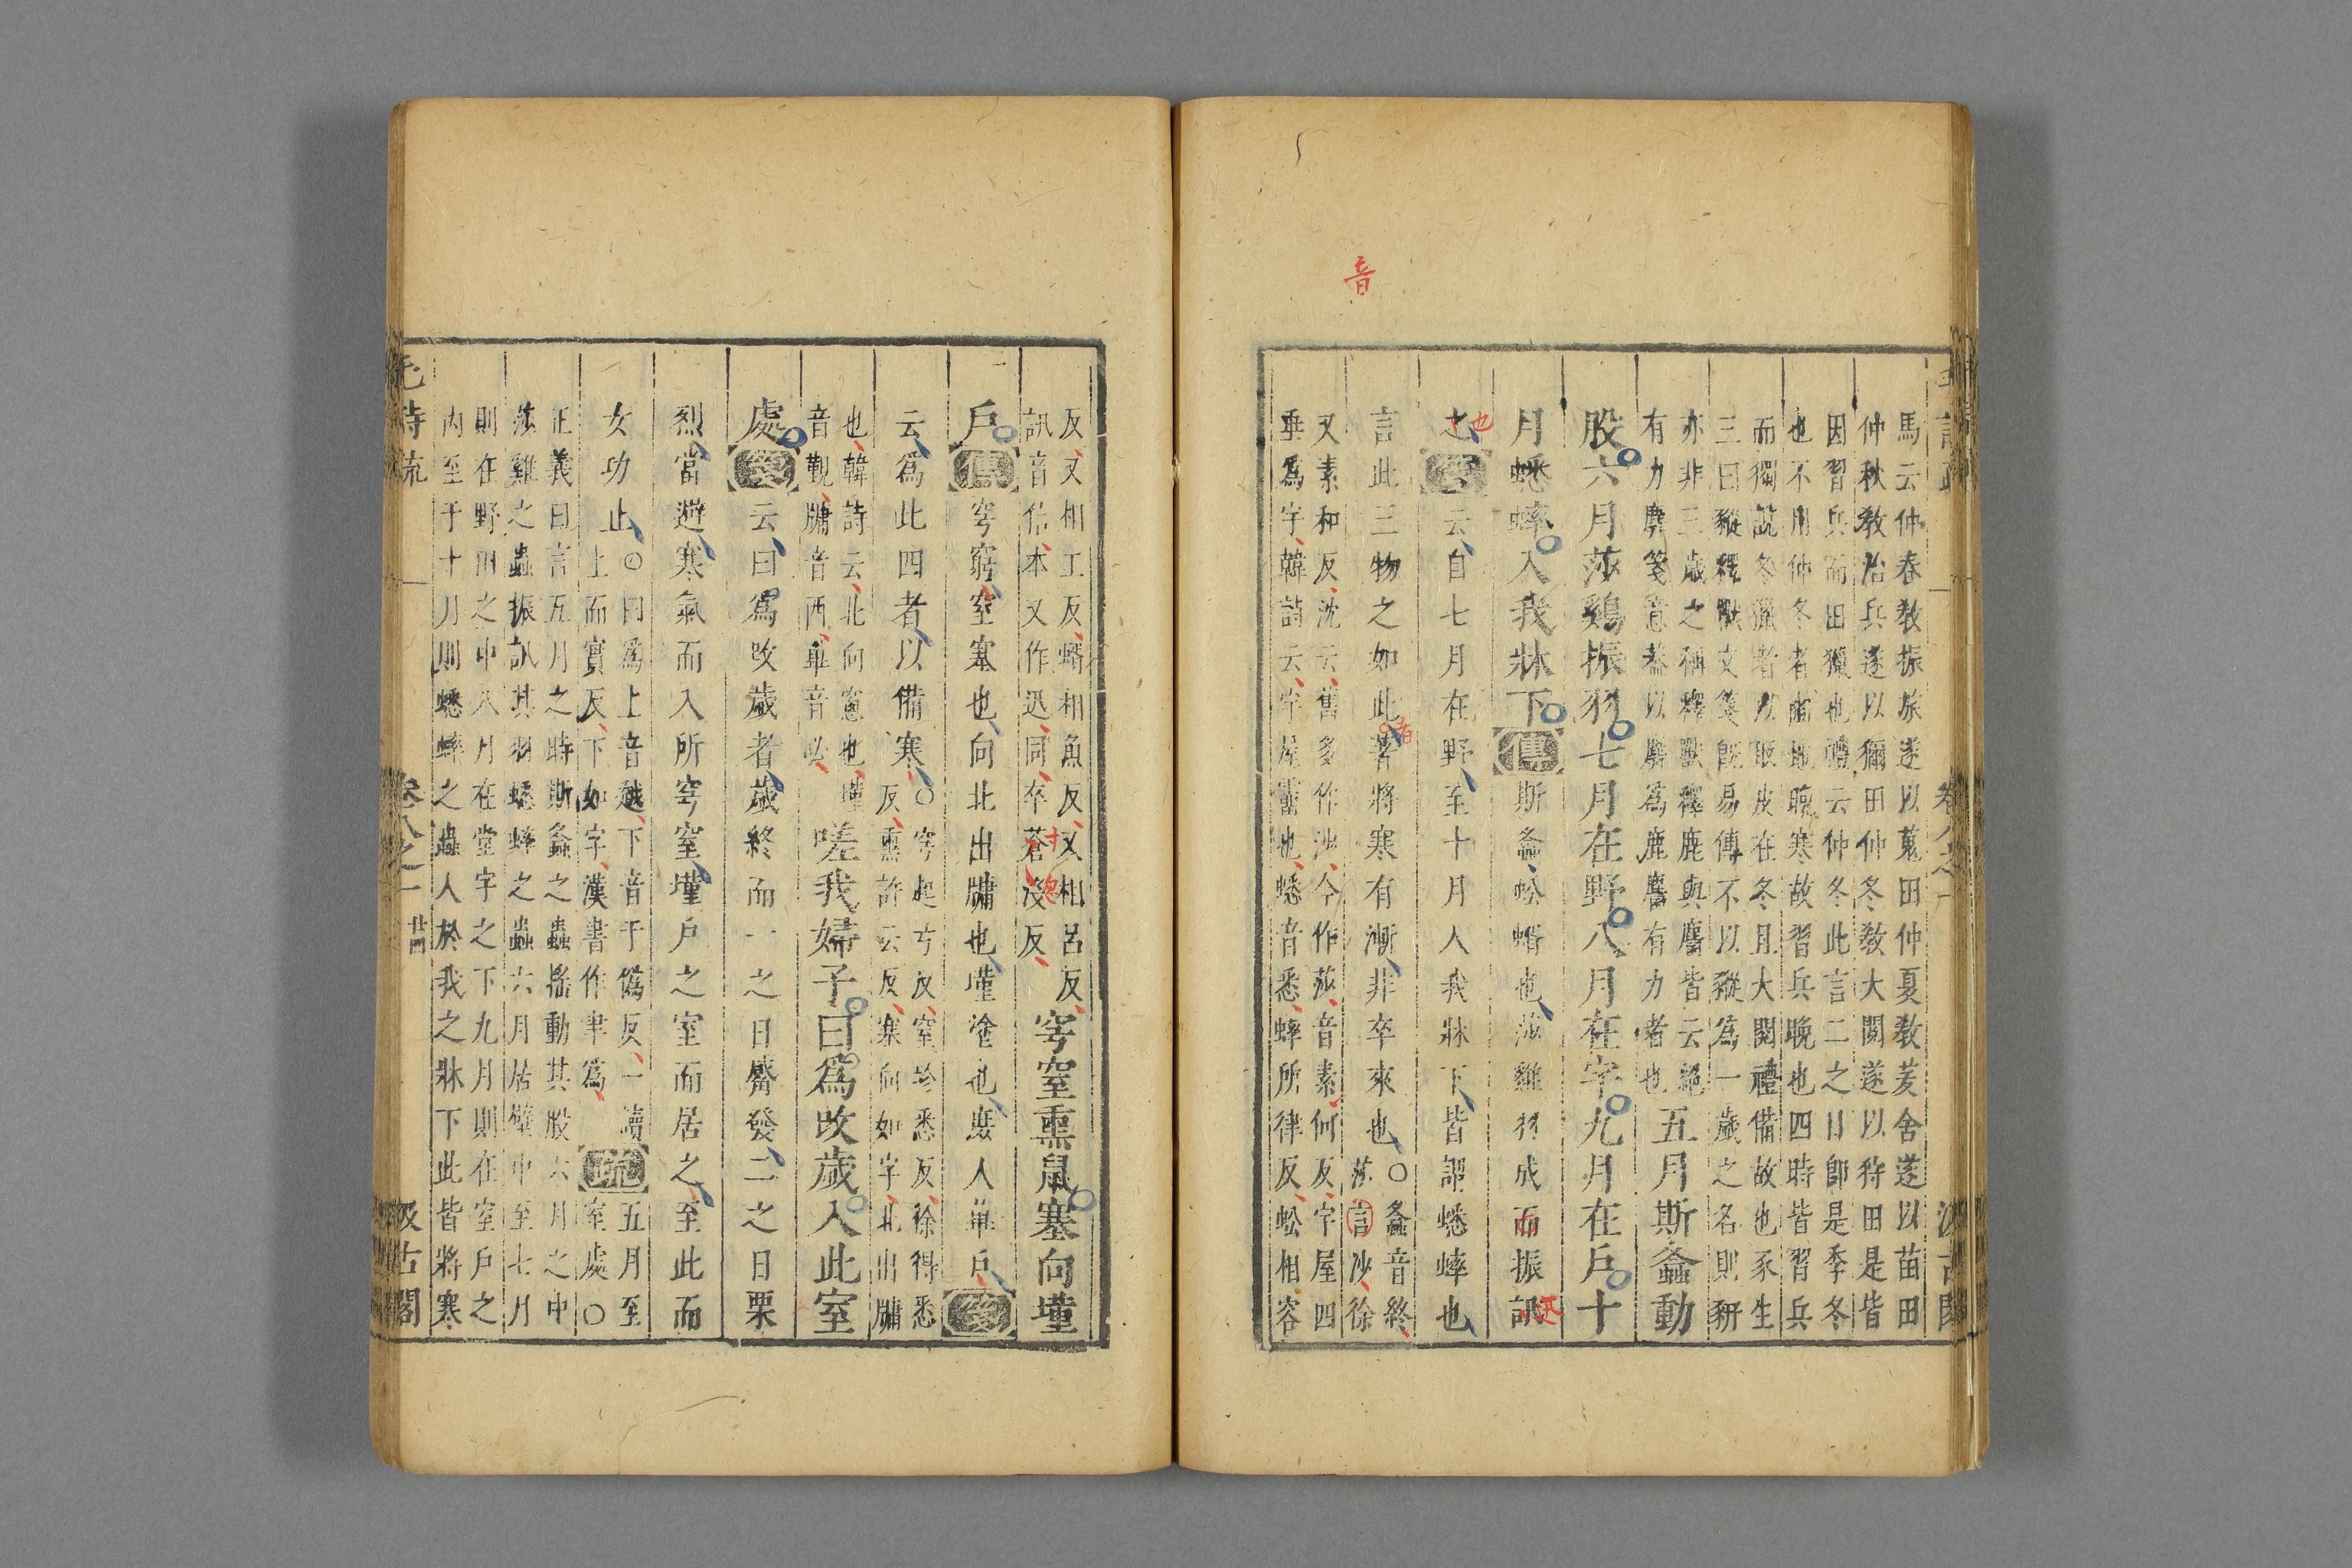 音
馬云仲春教振旅遂以蒐田仲夏教茇舍遂以苗田
仲秋教治兵遂以獮田仲冬教大閱遂以狩田是皆
因習兵而田獵也禮云仲冬此言二之日卽是季冬
也不用仲冬者豳地晚寒故習兵晚也四時皆習兵
而獨說冬獵者以取皮在冬且大閱禮備故也豕生
三曰豵釋獸文箋旣易傳不以豵爲一歲之名則豜
亦非三歲之稱釋獸釋鹿與麕皆云絕
有力麉箋意蓋以麉爲鹿麕有力者也
五月斯螽動
股六月莎鷄振羽七月在野八月在宇九月在戶十
月蟋蟀入我牀下傳斯螽蚣蝑也莎雞羽成而振訊
迅
之箋云自七月在野至十月入我牀下皆謂蟋蟀也
也
言此三物之如此著將寒有漸非卒來也○螽音終
莎言沙徐
者
又素和反沈云舊多作沙今作莎音素何反宇屋四
垂爲宇韓詩云宇屋霤也蟋音悉蟀所律反蚣相容
卷八之一
汲古閣
反又相工反蝑相魚反又相呂反
訊音信本又作迅同卒蒼沒反
寸忽
穹窒熏鼠塞向墐
戶傳穹窮窒塞也向北出牖也墐塗也庶人蓽戶箋
云爲此四者以備寒○穹起弓反窒珍悉反徐得悉
反熏許云反塞向如字北出牖
也韓詩云北向窻也墐
音覲牖音酉蓽音必
嗟我婦子曰爲改歲入此室
處箋云曰爲改歲者歲終而一之日觱發二之日栗
烈當避寒氣而入所穹窒墐戶之室而居之至此而
女功止○曰爲上音越下音于僞反一讀
上而實反下如字漢書作聿爲
疏五月至
室處○
正義曰言五月之時斯螽之蟲搖動其股六月之中
莎雞之蟲振訊其羽蟋蟀之蟲六月居壁中至七月
則在野田之中八月在堂宇之下九月則在室戶之
內至于十月則蟋蟀之蟲入於我之牀下此皆將寒
毛詩疏
卷八之一
廿四
汲古閣